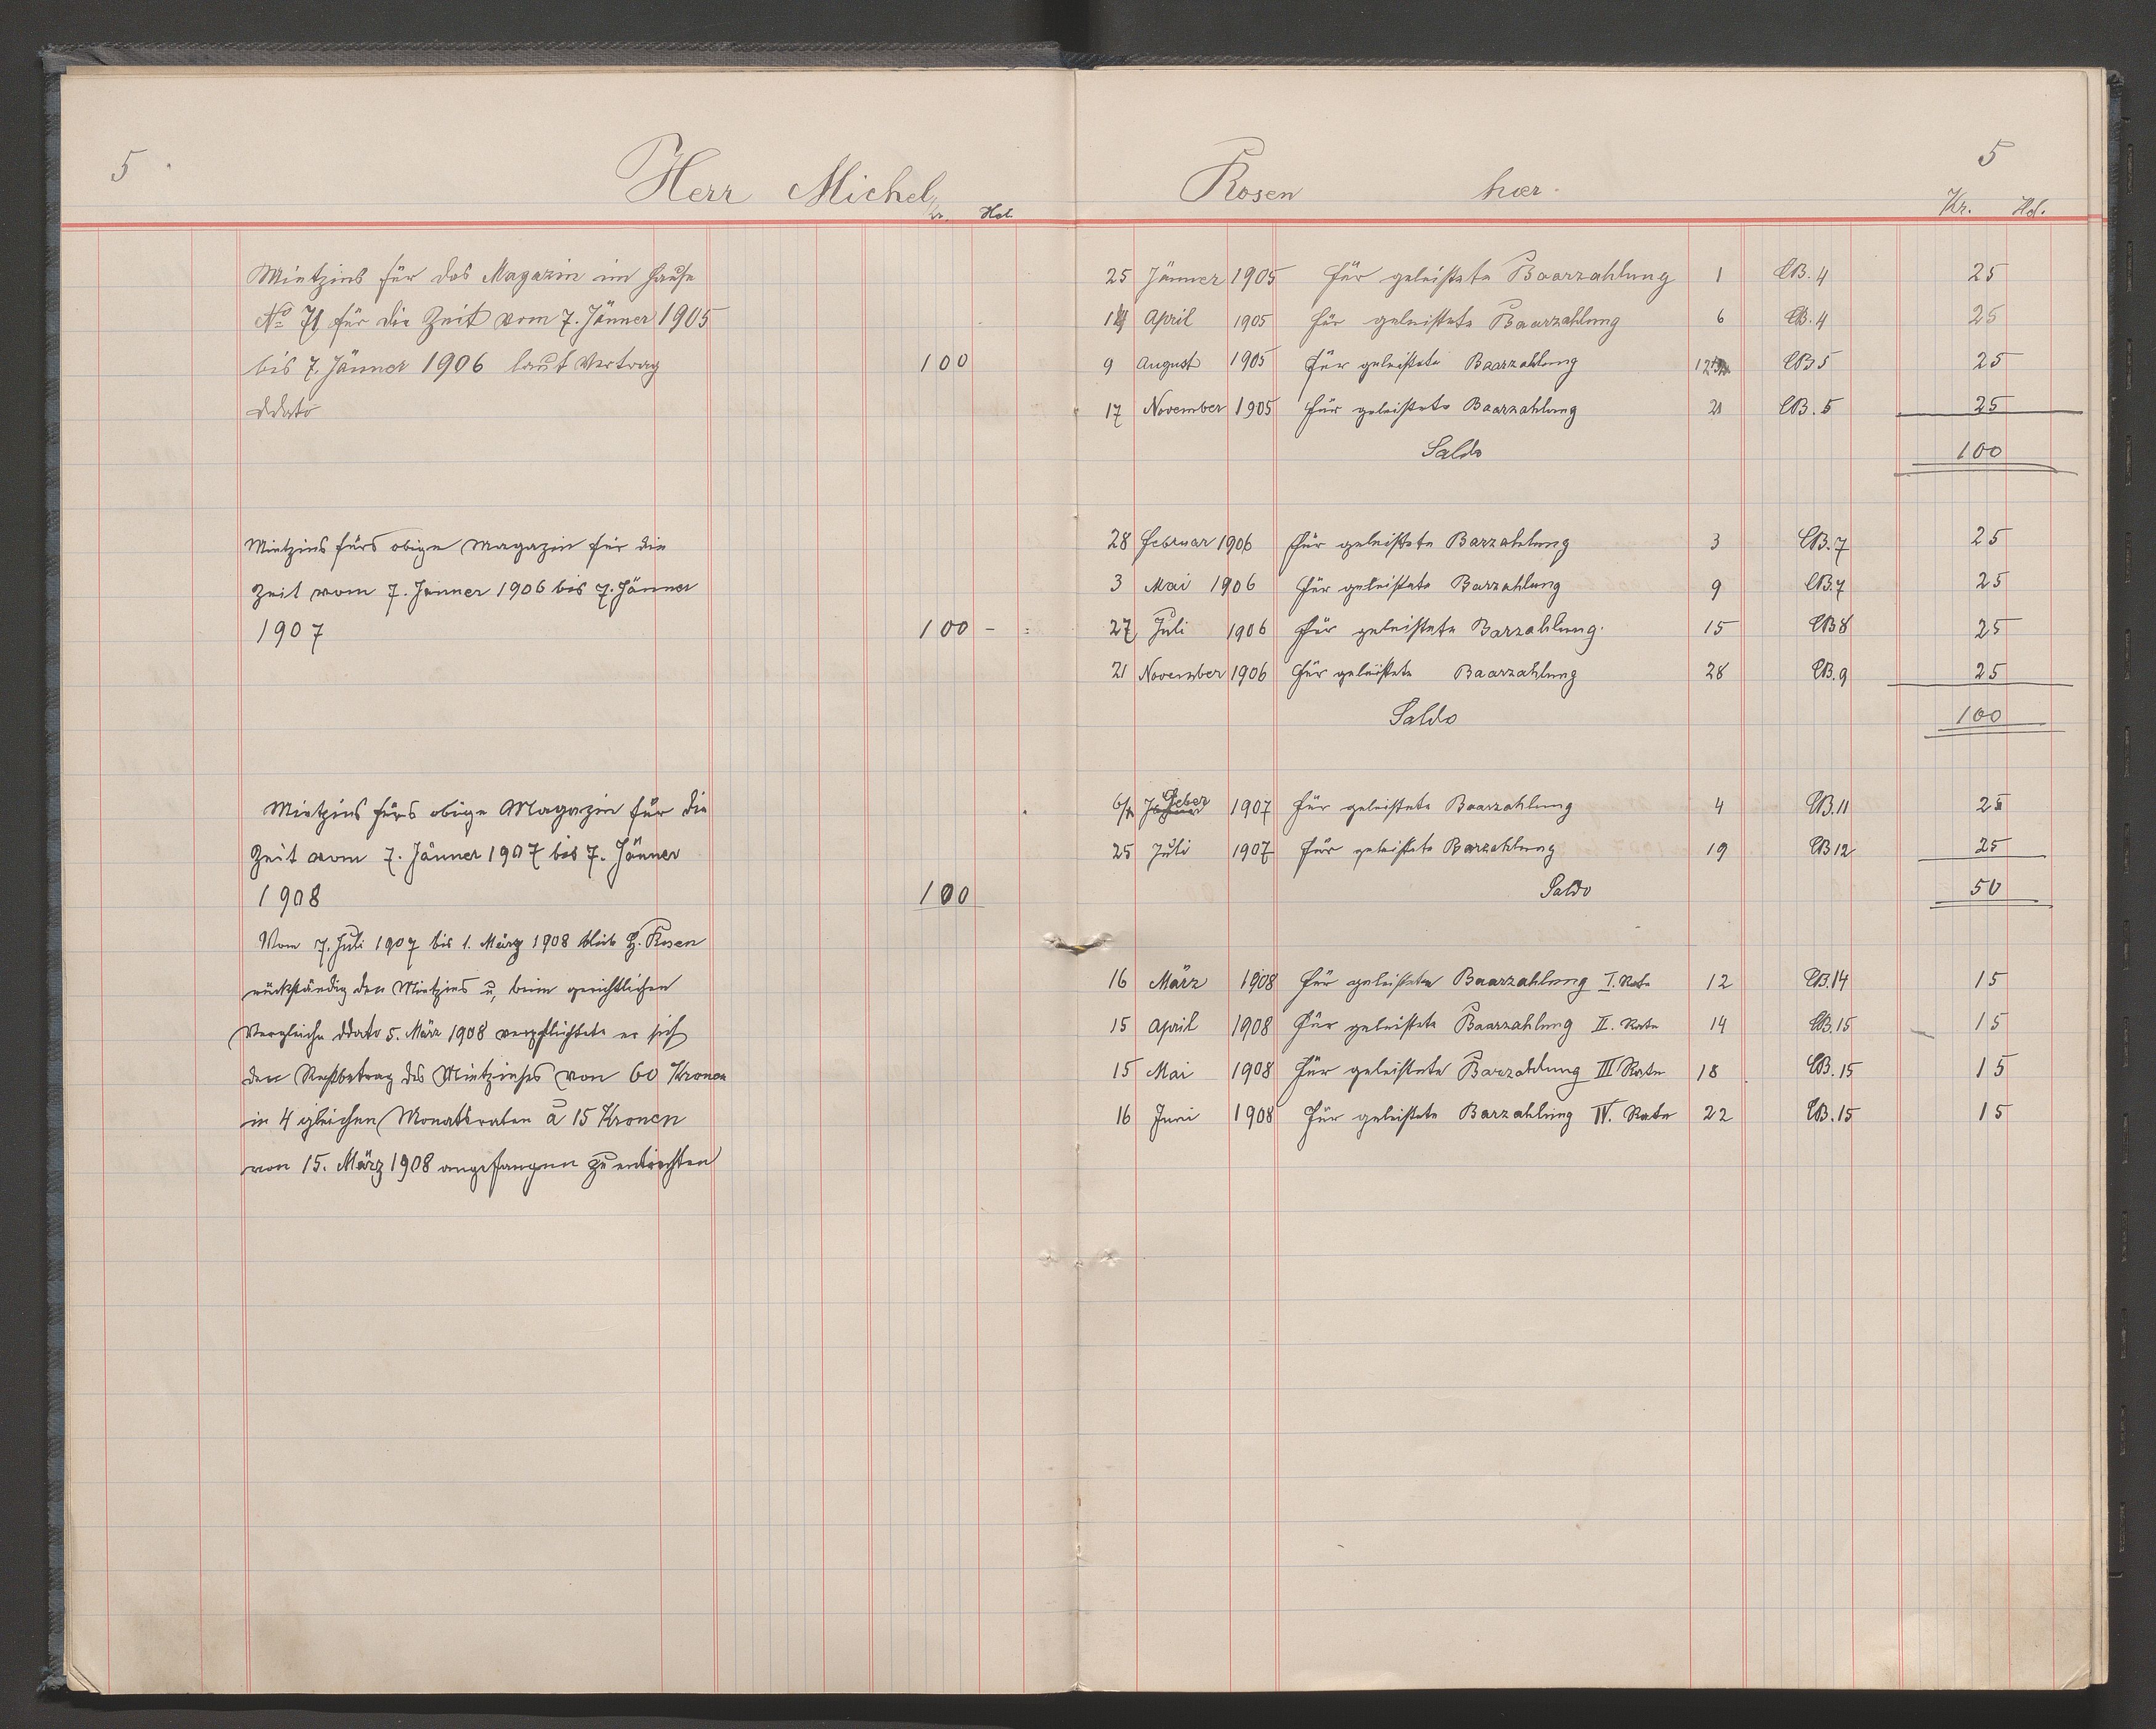 5
Herr Michel
Kr. Hel.
Mietzins für das Magazin im Hause
No 71 für die Zeit vom 7. Jänner 1905
bis 7. Jänner 1906 laut Vertrag 100
ddato
Mietzins fürs obige Magazin für die
Zeit vom 7. Jänner 1906 bis 7. Jänner
1907 100 -
Mietzins fürs obige Magazin für die
Zeit vom 7. Jänner 1907 bis 7. Jänner
1908 100
Vom 7. Juli 1907 bis 1. März 1908 blieb H. Rosen
rückständig den Mietzins u, beim gerichtlichen
Vergleiche ddato 5. März 1908 verpflichtete er sich
den Restbetrag des Mietzinses von 60 Kronen
in 4 gleichen Monatsraten à 15 Kronen
von 15. März 1908 angefangen zu entrichten
5
Rosen hier.
Kr. Hel.
25 Jänner 1905 Für geleistete Baarzahlung 1 CB. 4 25
April 1905 Für geleistete Baarzahlung 6 CB. 4 25
9 August 1905 Für geleistete Baarzahlung 12 CB 5 25
17 November 1905 Für geleistete Baarzahlung 21 CB. 5 25
Saldo 100
28 Februar 1906 Für geleistete Barzahlung 3 CB. 7 25
3 Mai 1906 Für geleistete Barzahlung 9 CB. 7 25
27 Juli 1906 Für geleistete Barzahlung. 15 CB 8 25
21 November 1906 Für geleistete Baarzahlung 28 CB. 9 25
Saldo 100
6/ Feber 1907 Für geleistete Baarzahlung 4 CB. 11 25
25 Juli 1907 Für geleistete Barzahlung 19 CB 12 25
Saldo 50
16 März 1908 Für geleistete Baarzahlung I. Rate 12 CB. 14 15
15 April 1908 Für geleistete Baarzahlung II. Rate 14 CB. 15 15
15 Mai 1908 Für geleistete Barzahlung III Rate 18 CB. 15 15
16 Juni 1908 Für geleistete Barzahlung IV. Rate 22 CB. 15 15